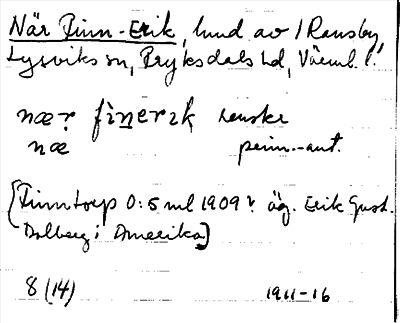 När Finn-Erik, lund av 1 Ransby,
Lysviks sn, Fryksdals hd, Värml. l.
næṛ fìnerɩk
næ
[Finntorp 0:5 ml 1909 äg. Erik Gust.
Dalberg i Amerika]
8 (14) 1911-16